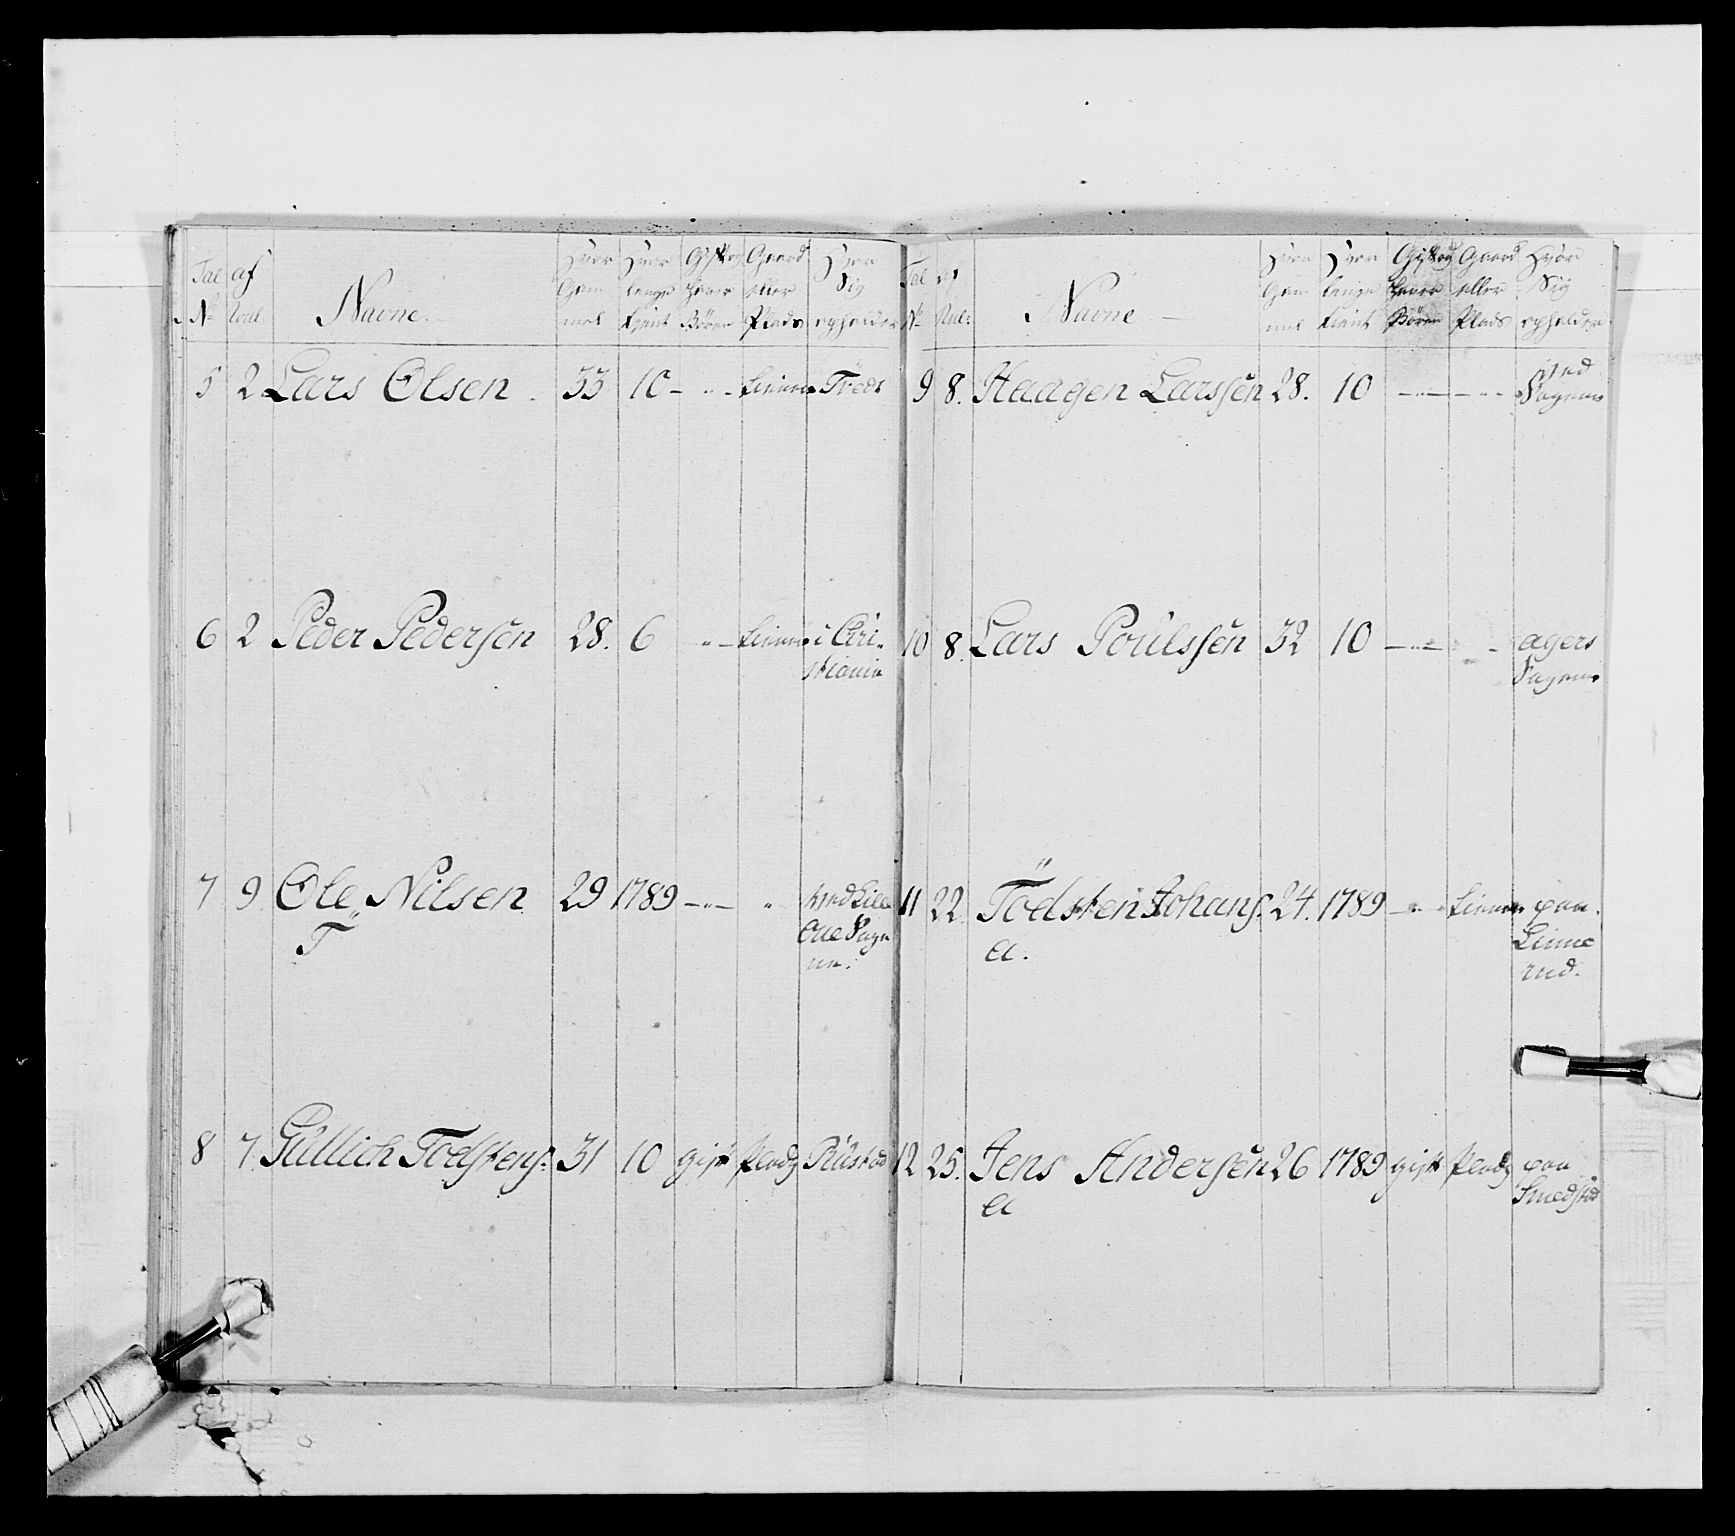 Tal No
af
Navne
Hvor Gam mel
Hvor lenge tient
Gift og haver Bören
Gaard eller Plads
Hvor Sig opholder
5 2 Lars Olsen 33 10 - " - tiener
6 2 Peder Pedersen 28. 6 " - tiener i Chri-
stiania
7 9 Ole Nilsen 29 1789 - " - " ved Lille
T Sogn
8 7. Gullich Todstens: 31 10 gift Plads Rustad
Tal No
af
Navne
Hvor Gam mel
Hvor lenge tient
Gift og haver Bören
Gaard eller Plads
Hvor Sig opholder
9 8. Haagen Larssen 28. 10 - " - - " - ved
10 8. Lars Poulssen 32 10 - " - - agers
11 22. Tödsten Johans: 24. 1789 - " - tiener paa
a. Linne
rud.
12 25. Jens Andersen 26 1789 gift Plads paa
a Smedstad